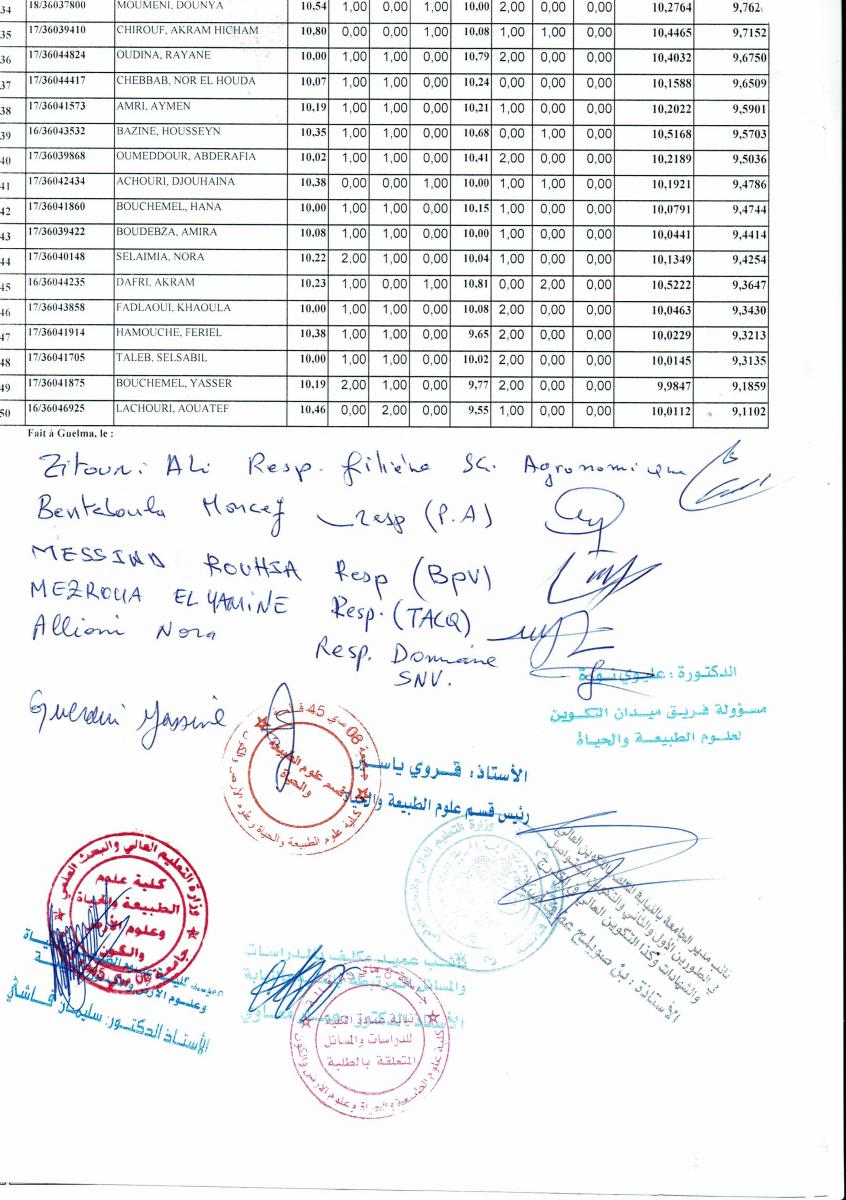 34 18/36037800 MOUMENI, DOUNYA 10,54 1,00 0,00 1,00 10,00 2,00 0,00 0,00 10,2764 9,762
35 17/36039410 CHIROUF, AKRAM HICHAM 10,80 0,00 0,00 1,00 10,08 1,00 1,00 0,00 10,4465 9,7152
36 17/36044824 OUDINA, RAYANE 10,00 1,00 1,00 0,00 10,79 2,00 0,00 0,00 10,4032 9,6750
37 17/36044417 CHEBBAB, NOR EL HOUDA 10,07 1,00 1,00 0,00 10,24 0,00 0,00 0,00 10,1588 9,6509
38 17/36041573 AMRI, AYMEN 10,19 1,00 1,00 0,00 10,21 1,00 0,00 0,00 10,2022 9,5901
39 16/36043532 BAZINE, HOUSSEYN 10,35 1,00 1,00 0,00 10,68 0,00 1,00 0,00 10,5168 9,5703
40 17/36039868 OUMEDDOUR, ABDERAFIA 10,02 1,00 1,00 0,00 10,41 2,00 0,00 0,00 10,2189 9,5036
41 17/36042434 ACHOURI, DJOUHAINA 10,38 0,00 0,00 1,00 10,00 1,00 1,00 0,00 10,1921 9,4786
42 17/36041860 BOUCHEMEL, HANA 10,00 1,00 1,00 0,00 10,15 1,00 0,00 0,00 10,0791 9,4744
43 17/36039422 BOUDEBZA, AMIRA 10,08 1,00 1,00 0,00 10,00 1,00 0,00 0,00 10,0441 9,4414
44 17/36040148 SELAIMIA, NORA 10,22 2,00 1,00 0,00 10,04 1,00 0,00 0,00 10,1349 9,4254
45 16/36044235 DAFRI, AKRAM 10,23 1,00 0,00 1,00 10,81 0,00 2,00 0,00 10,5222 9,3647
46 17/36043858 FADLAOUI, KHAOULA 10,00 1,00 1,00 0,00 10,08 2,00 0,00 0,00 10,0463 9,3430
47 17/36041914 HAMOUCHE, FERIEL 10,38 1,00 1,00 0,00 9,65 2,00 0,00 0,00 10,0229 9,3213
48 17/36041705 TALEB, SELSABIL 10,00 1,00 1,00 0,00 10,02 2,00 0,00 0,00 10,0145 9,3135
49 17/36041875 BOUCHEMEL, YASSER 10,19 2,00 1,00 0,00 9,77 2,00 0,00 0,00 9,9847 9,1859
50 16/36046925 LACHOURI, AOUATEF 10,46 0,00 2,00 0,00 9,55 1,00 0,00 0,00 10,0112 9,1102
Fait à Guelma, le :
Zitouni Ali Resp. filière Sc. Agronomique
Bentaboula Moncef resp (P.A)
MESSIND ROUHIA Resp (BPV)
MEZROUA EL YAMINE Resp. (TACQ)
Allioni Nora Resp. Domaine
SNV.
الدكتورة : عليوي نورة
مسؤولة فريق ميدان التكوين
لعلوم الطبيعة والحياة
Gueroui Yassine
جامعة 08 ماي 45 قالمة
قسم علوم الطبيعة
والحياة
كلية علوم الطبيعة والحياة وعلوم الأرض والكون
الأستاذ: قروي ياسين
رئيس قسم علوم الطبيعة والحياة
وزارة التعليم العالي والبحث العلمي
كلية علوم
الطبيعة والحياة
وعلوم الأرض
والكون
جامعة 08 ماي 45
الأستاذ الدكتور: سليمان
نائب مدير الجامعة
نيابة عمادة الكلية
للدراسات والمسائل
المتعلقة بالطلبة
كلية علوم الطبيعة والحياة وعلوم الأرض والكون